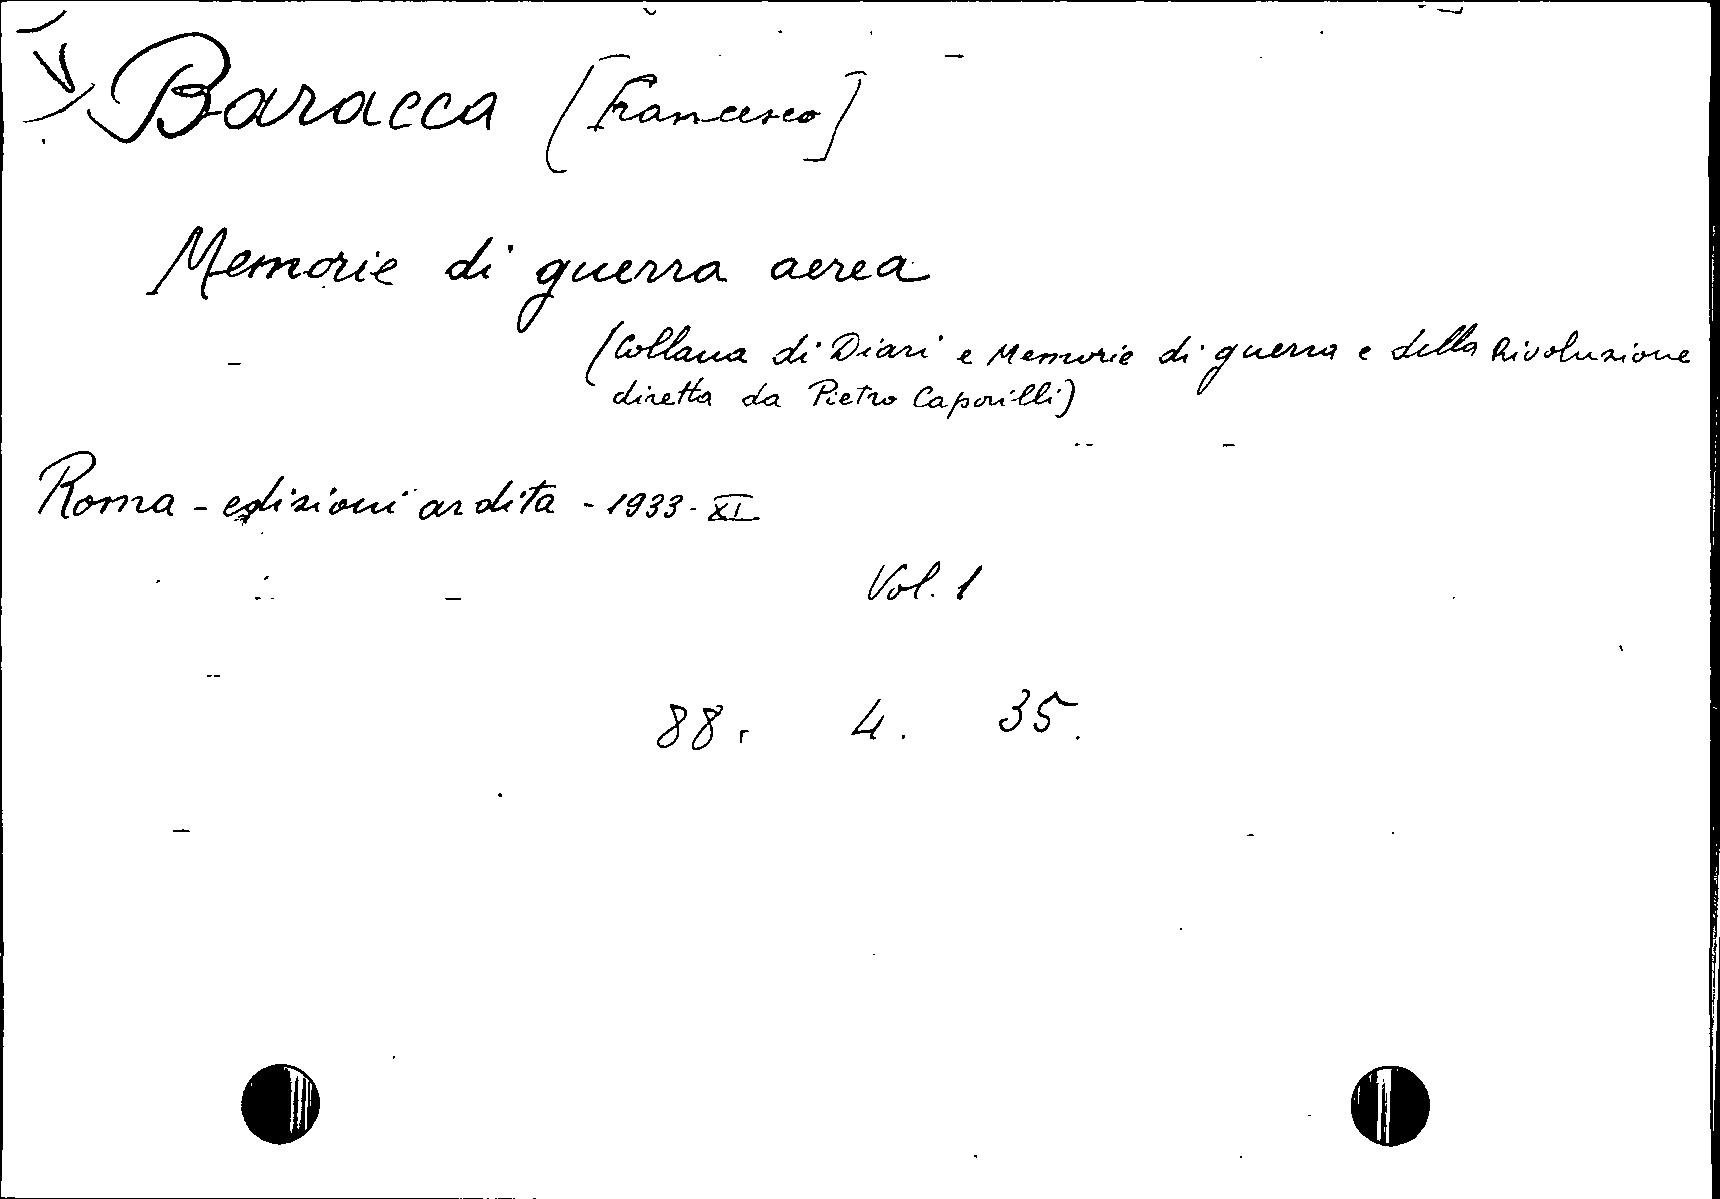 Baracca [Francesco]
Memorie di guerra aerea
(Collana di Diari e Memorie di guerra e della Rivoluzione
diretta da Pietro Caporilli)
Roma - edizioni ardita - 1933 - XI
Vol. 1
88. 4. 35.